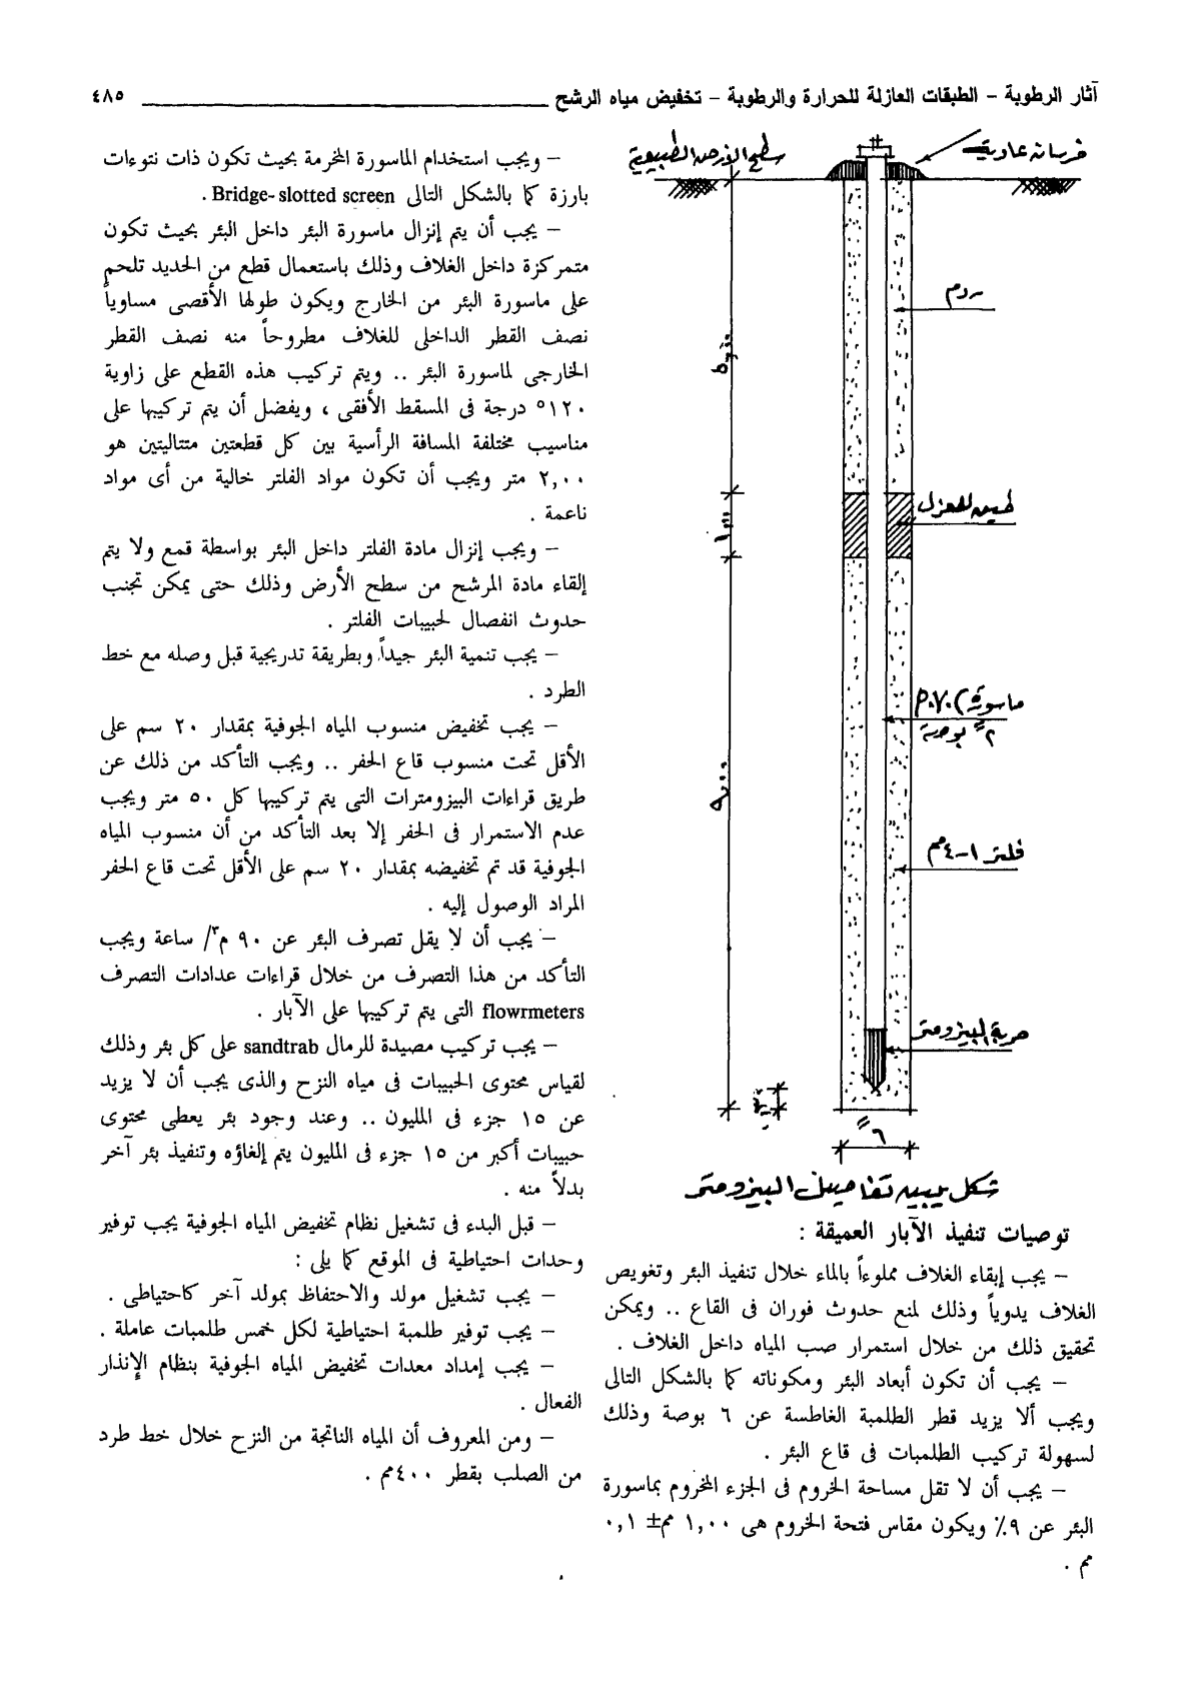 آثار الرطوبة – الطبقات العازلة للحرارة والرطوبة – تخفيض مياه الرشح ٤٨٥
سطح الأرض الطبيعية
خرسانة عادية
ردم
طين للعزل
١,٠٠
ماسورة P.V.C
٢" بوصة
٩,٠٠
فلتر ١-٤مم
حربة البيزومتر
٦"
شكل يبين تفاصيل البيزومتر
توصيات تنفيذ الآبار العميقة :
– يجب إبقاء الغلاف مملوءاً بالماء خلال تنفيذ البئر وتغويص
الغلاف يدوياً وذلك لمنع حدوث فوران فى القاع .. ويمكن
تحقيق ذلك من خلال استمرار صب المياه داخل الغلاف .
– يجب أن تكون أبعاد البئر ومكوناته كما بالشكل التالى
ويجب ألا يزيد قطر الطلمبة الغاطسة عن ٦ بوصة وذلك
لسهولة تركيب الطلمبات فى قاع البئر .
– يجب أن لا تقل مساحة الخروم فى الجزء المخروم بماسورة
البئر عن ٩٪ ويكون مقاس فتحة الخروم هى ١,٠٠ مم± ٠,١
مم .
– ويجب استخدام الماسورة المخرمة بحيث تكون ذات نتوءات
بارزة كما بالشكل التالى Bridge-slotted screen .
– يجب أن يتم إنزال ماسورة البئر داخل البئر بحيث تكون
متمركزة داخل الغلاف وذلك باستعمال قطع من الحديد تلحم
على ماسورة البئر من الخارج ويكون طولها الأقصى مساوياً
نصف القطر الداخلى للغلاف مطروحاً منه نصف القطر
الخارجى لماسورة البئر .. ويتم تركيب هذه القطع على زاوية
١٢٠° درجة فى المسقط الأفقى ، ويفضل أن يتم تركيبها على
مناسيب مختلفة المسافة الرأسية بين كل قطعتين متتاليتين هو
٢,٠٠ متر ويجب أن تكون مواد الفلتر خالية من أى مواد
ناعمة .
– ويجب إنزال مادة الفلتر داخل البئر بواسطة قمع ولا يتم
إلقاء مادة المرشح من سطح الأرض وذلك حتى يمكن تجنب
حدوث انفصال لحبيبات الفلتر .
– يجب تنمية البئر جيداً وبطريقة تدريجية قبل وصله مع خط
الطرد .
– يجب تخفيض منسوب المياه الجوفية بمقدار ٢٠ سم على
الأقل تحت منسوب قاع الحفر .. ويجب التأكد من ذلك عن
طريق قراءات البيزومترات التى يتم تركيبها كل ٥٠ متر ويجب
عدم الاستمرار فى الحفر إلا بعد التأكد من أن منسوب المياه
الجوفية قد تم تخفيضه بمقدار ٢٠ سم على الأقل تحت قاع الحفر
المراد الوصول إليه .
– يجب أن لا يقل تصرف البئر عن ٩٠ م٣/ ساعة ويجب
التأكد من هذا التصرف من خلال قراءات عدادات التصرف
flowrmeters التى يتم تركيبها على الآبار .
– يجب تركيب مصيدة للرمال sandtrab على كل بئر وذلك
لقياس محتوى الحبيبات فى مياه النزح والذى يجب أن لا يزيد
عن ١٥ جزء فى المليون .. وعند وجود بئر يعطى محتوى
حبيبات أكبر من ١٥ جزء فى المليون يتم إلغاؤه وتنفيذ بئر آخر
بدلاً منه .
– قبل البدء فى تشغيل نظام تخفيض المياه الجوفية يجب توفير
وحدات احتياطية فى الموقع كما يلى :
– يجب تشغيل مولد والاحتفاظ بمولد آخر كاحتياطى .
– يجب توفير طلمبة احتياطية لكل خمس طلمبات عاملة .
– يجب إمداد معدات تخفيض المياه الجوفية بنظام الإنذار
الفعال .
– ومن المعروف أن المياه الناتجة من النزح خلال خط طرد
من الصلب بقطر ٤٠٠مم .